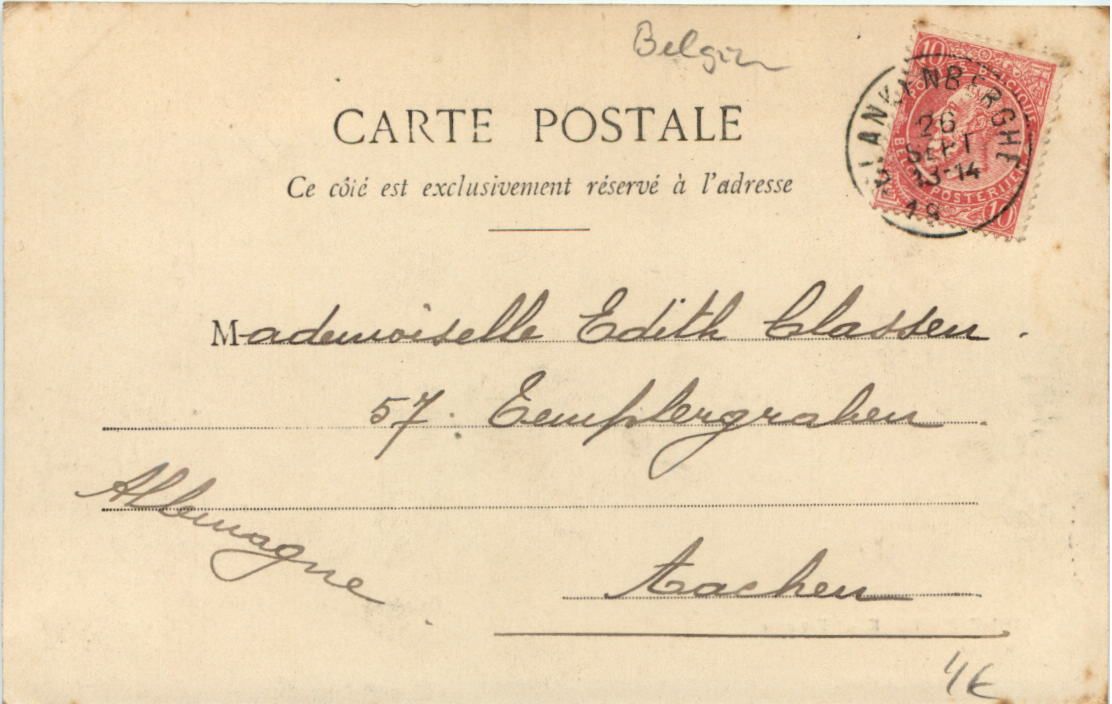 Belgien
CARTE POSTALE
Ce côté est exclusivement réservé à l'adresse
10
BLANKENBERGHE
26
SEPT
13-14
BELGIQUE
POSTERIJEN
10
Mademoiselle Edith Classen.
57. Templergraben.
Allemagne
Aachen
4€